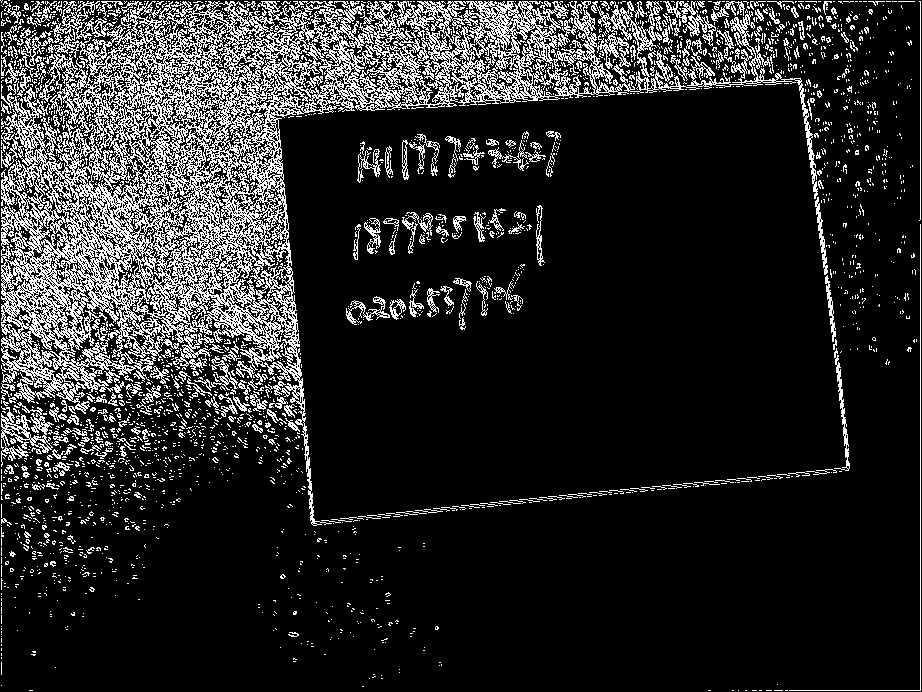 KH197743267
18799358521
0206557906